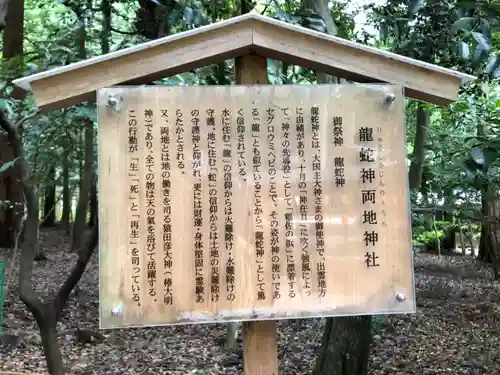 龍蛇神両地神社
りゅうじゃじんりょうち
御祭神　龍蛇神
龍蛇神とは、大国主大神さまの御使神で、出雲地方
に由緒があり、十月の「神在祭」に吹く強風によっ
て「神々の先導役」として「稲佐の浜」に漂着する
セグロウミヘビ（海蛇）が、とぐろを巻いた姿であ
る「龍」とも似ていることから「龍蛇神」として篤
く信仰されている。
水に住む「龍」の信仰からは火難除け・水難除けの
守護、地に住む「蛇」の信仰からは土地の災難除け
の守護神と仰がれ、更には財運・身体堅固に霊験あ
らたかとされる。
又、両地とは地の働きを司る猿田彦大神（椿大明
神）であり、全ての物は天の氣を浴びて活躍する。
この行動が「生」「死」と「再生」を司っている。